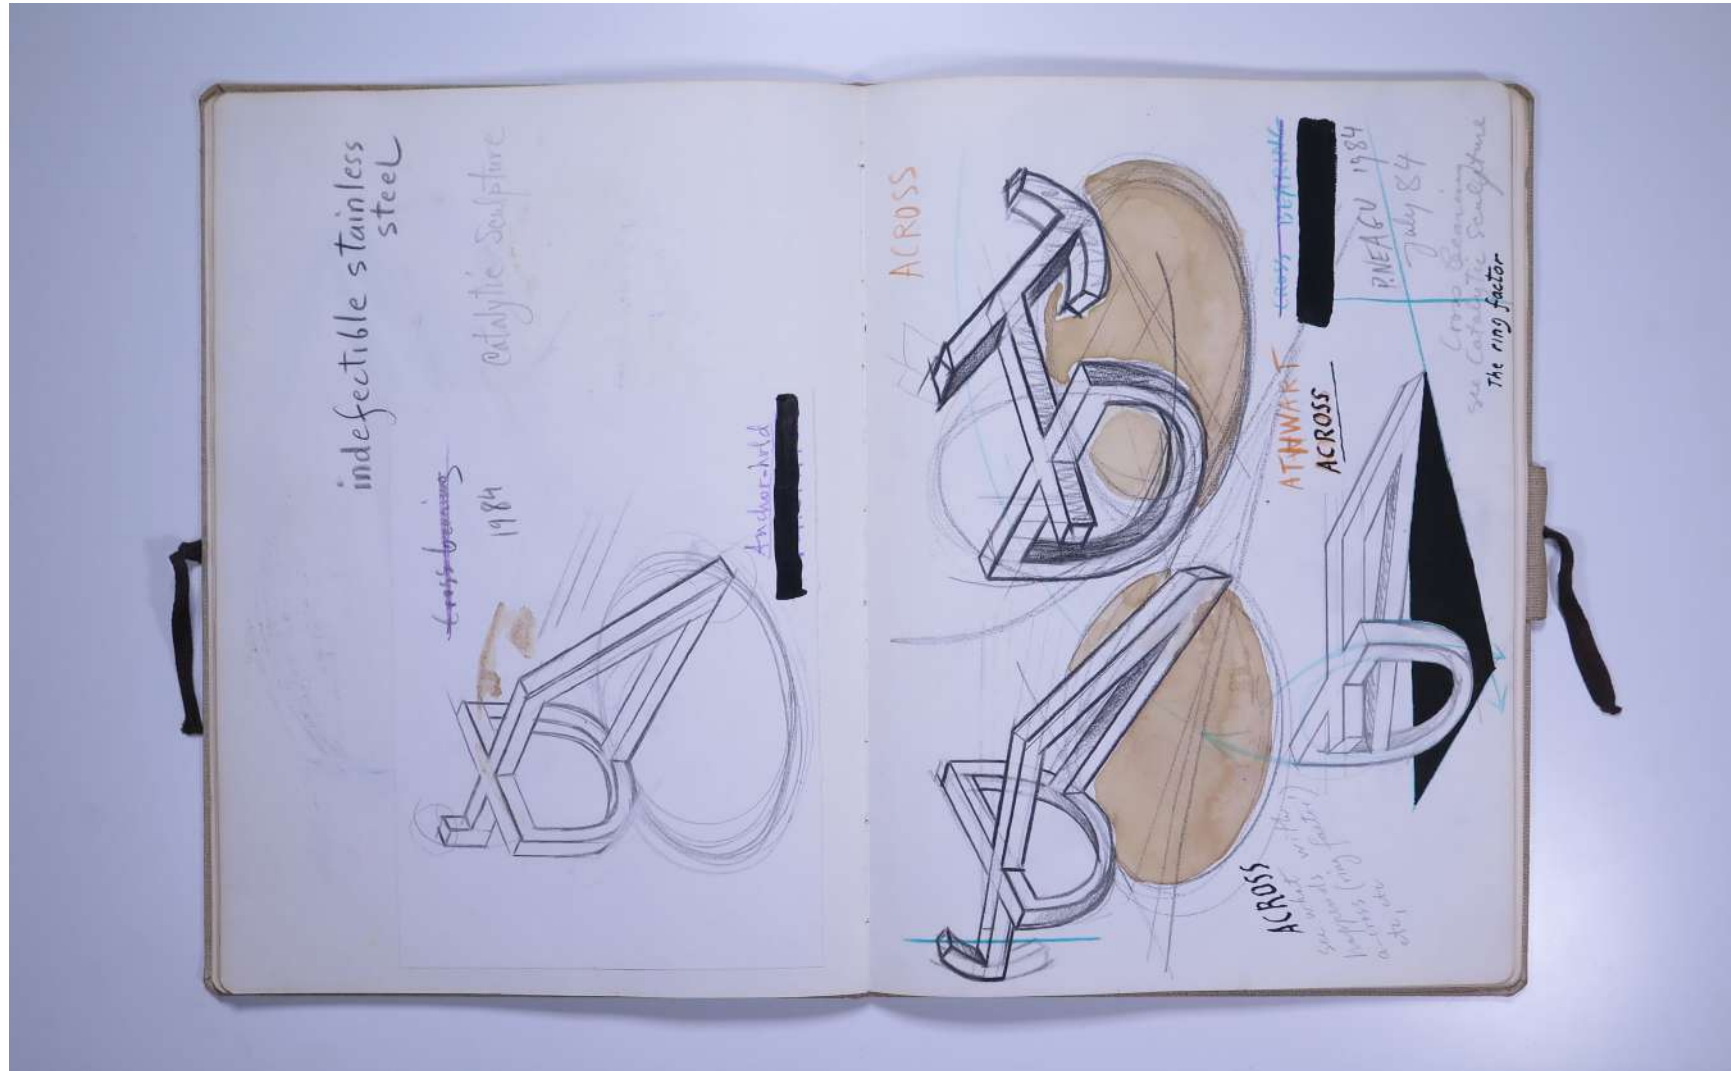 indefectible stainless
steel
Catalytic Sculpture
Cross bearing
1984
Anchor-hold
ACROSS
CROSS BEARING
P.NEAGU 1984
July 84
Cross Bearing
see Catalytic Sculpture
The ring factor
ATHWART
ACROSS
ACROSS
see what
happens (ring factor)
a-cross etc
etc,